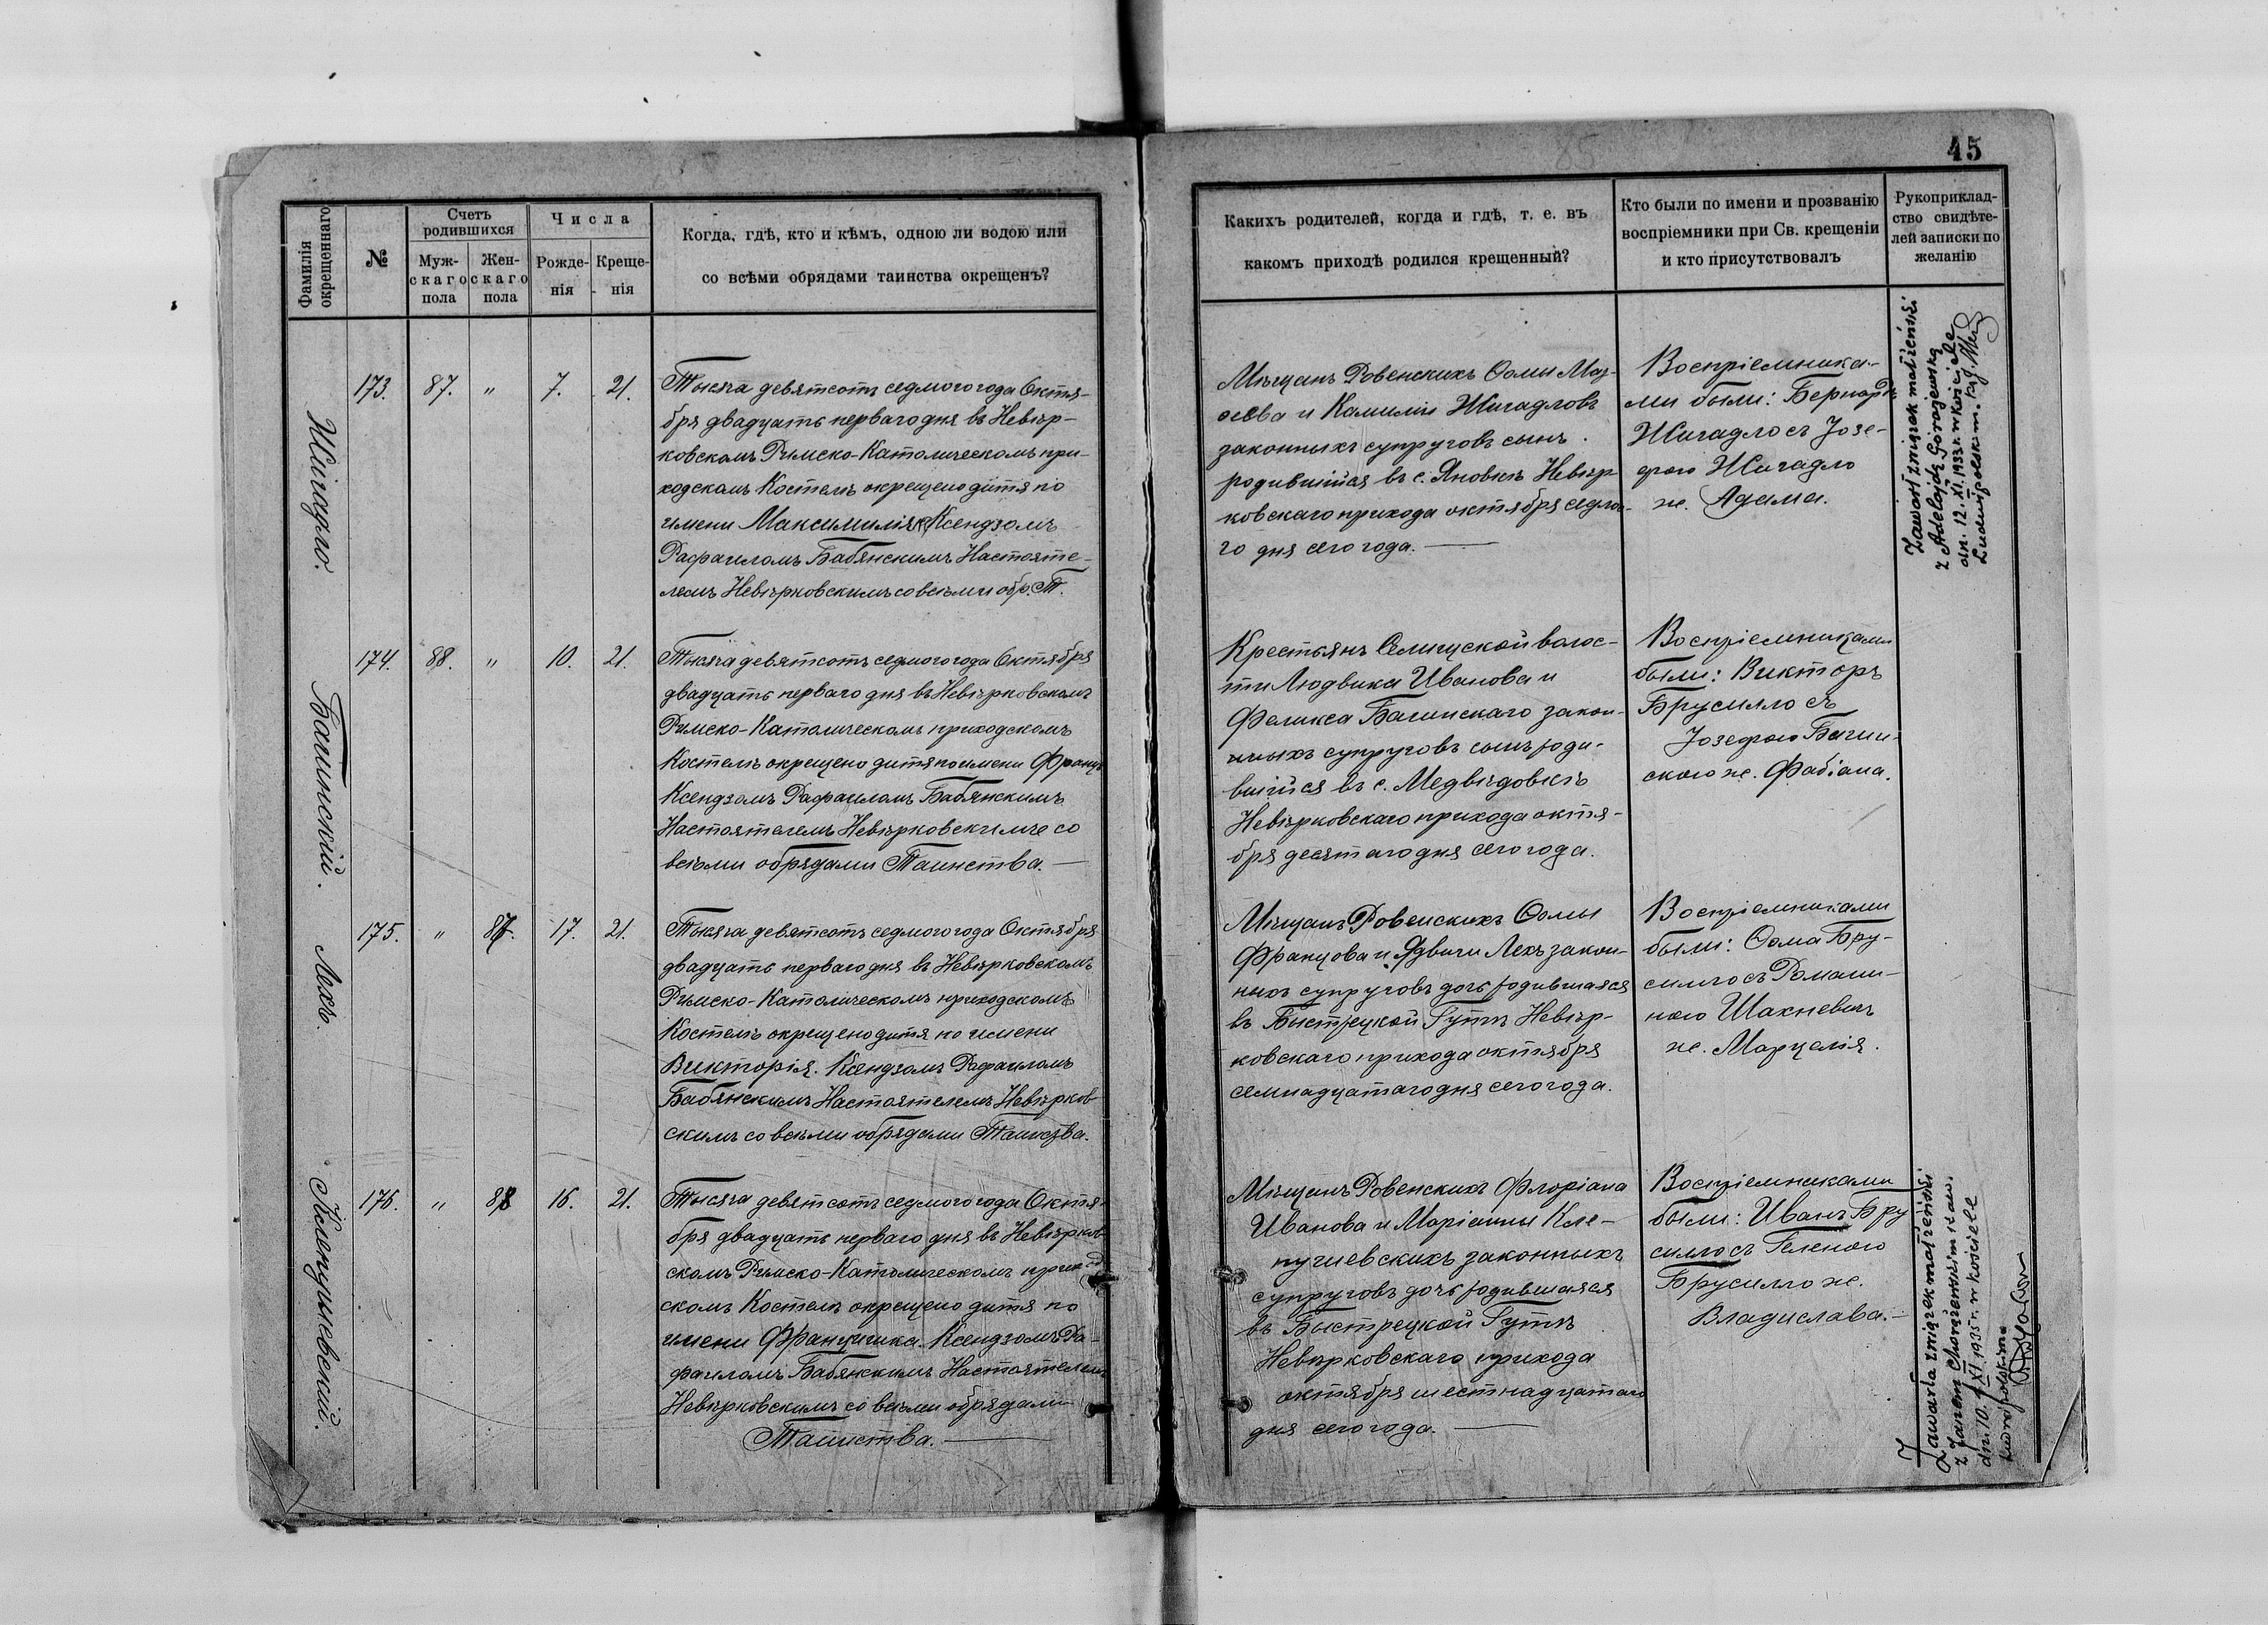 45
85
Фамилія окрещеннаго
№
Счетъ родившихся
Муж-
скаго
пола
Жен-
скаго
пола
Числа
Рожде-
нія
Креще-
нія
Когда, гдѣ, кто и кѣмъ, одною ли водою или
со всѣми обрядами таинства окрещенъ?
Какихъ родителей, когда и гдѣ, т. е. въ
какомъ приходѣ родился крещенный?
Кто были по имени и прозванію
воспріемники при Св. крещеніи
и кто присутствовалъ
Рукоприклад-
ство свидѣте-
лей записки по
желанію
Жигадло.
173. 87. " 7. 21.
Тысяча девятсотъ седмого года Октя-
бря двадцать перваго дня въ Невѣр-
ковскомъ Римско-Католическомъ при-
ходскомъ Костелѣ окрещено дитя по
имени Максимилія Ксендзомъ
Рафаиломъ Бабянскимъ Настояте-
лемъ Невѣрковскимъ со всѣми обр. Т.
Мѣщанъ Ровенскихъ Ѳомы
и Камиліи Жигадловъ
законныхъ супруговъ сынъ
родившійся въ с. Яновкѣ Невѣр-
ковскаго прихода октября седмо-
го дня сего года.
Воспріемника-
ми были: Бернардъ
Жигадло съ Јозе-
фою Жигадло
ж. Адама.
Zawarł związek małżeński
z Adelajdą Gorajewską
dn. 12. XI. 1933 r. w kościele
Ludwipolskim.
Багинскій.
174. 88. " 10. 21.
Тысяча девятсотъ седмого года Октября
двадцать перваго дня въ Невѣрковскомъ
Римско-Католическомъ приходскомъ
Костелѣ окрещено дитя по имени Францъ
Ксендзомъ Рафаиломъ Бабянскимъ
Настоятелемъ Невѣрковскимъ со
всѣми обрядами Таинства.
Крестьянъ Селищской волос-
ти Людвика Иванова и
Феликса Багинскаго закон-
ныхъ супруговъ сынъ роди-
вшійся въ с. Медвѣдовкѣ
Невѣрковскаго прихода октя-
бря десятаго дня сего года.
Воспріемниками
были: Викторъ
Брусилло съ
Јозефою Багин-
скою ж. Фабіана.
Лехъ.
175. " 87. 17. 21.
Тысяча девятсотъ седмого года Октября
двадцать перваго дня въ Невѣрковскомъ
Римско-Католическомъ приходскомъ
Костелѣ окрещено дитя по имени
Викторія. Ксендзомъ Рафаиломъ
Бабянскимъ Настоятелемъ Невѣрков-
скимъ со всѣми обрядами Таинства.
Мѣщанъ Ровенскихъ Ѳомы
Францова и Ядвиги Лехъ закон-
ныхъ супруговъ дочь родившаяся
въ Быстрецкой Гутѣ Невѣр-
ковскаго прихода октября
семнадцатаго дня сего года.
Воспріемниками
были: Ѳома Бру-
силло съ Романи-
ною Шакневичъ
ж. Марцелія.
Клепушевскій.
176. " 88 16. 21.
Тысяча девятсотъ седмого года Октя-
бря двадцать перваго дня въ Невѣрков-
скомъ Римско-Католическомъ приход-
скомъ Костелѣ окрещено дитя по
имени Франциши­ка. Ксендзомъ Ра-
фаиломъ Бабянскимъ Настоятелемъ
Невѣрковскимъ со всѣми обрядами
Таинства.
Мѣщанъ Ровенскихъ Флоріана
Иванова и Маріанны Кле-
пушевскихъ законныхъ
супруговъ дочь родившаяся
въ Быстрецкой Гутѣ
Невѣрковскаго прихода
октября шестнадцатаго
дня сего года.
Воспріемниками
были: Иванъ Бру
силло съ Геленою
Брусилло ж.
Владислава.
Zawarła związek małżeński
z Janem
dn. 10. XI. 1935 r. w kościele
Ludwipolskim